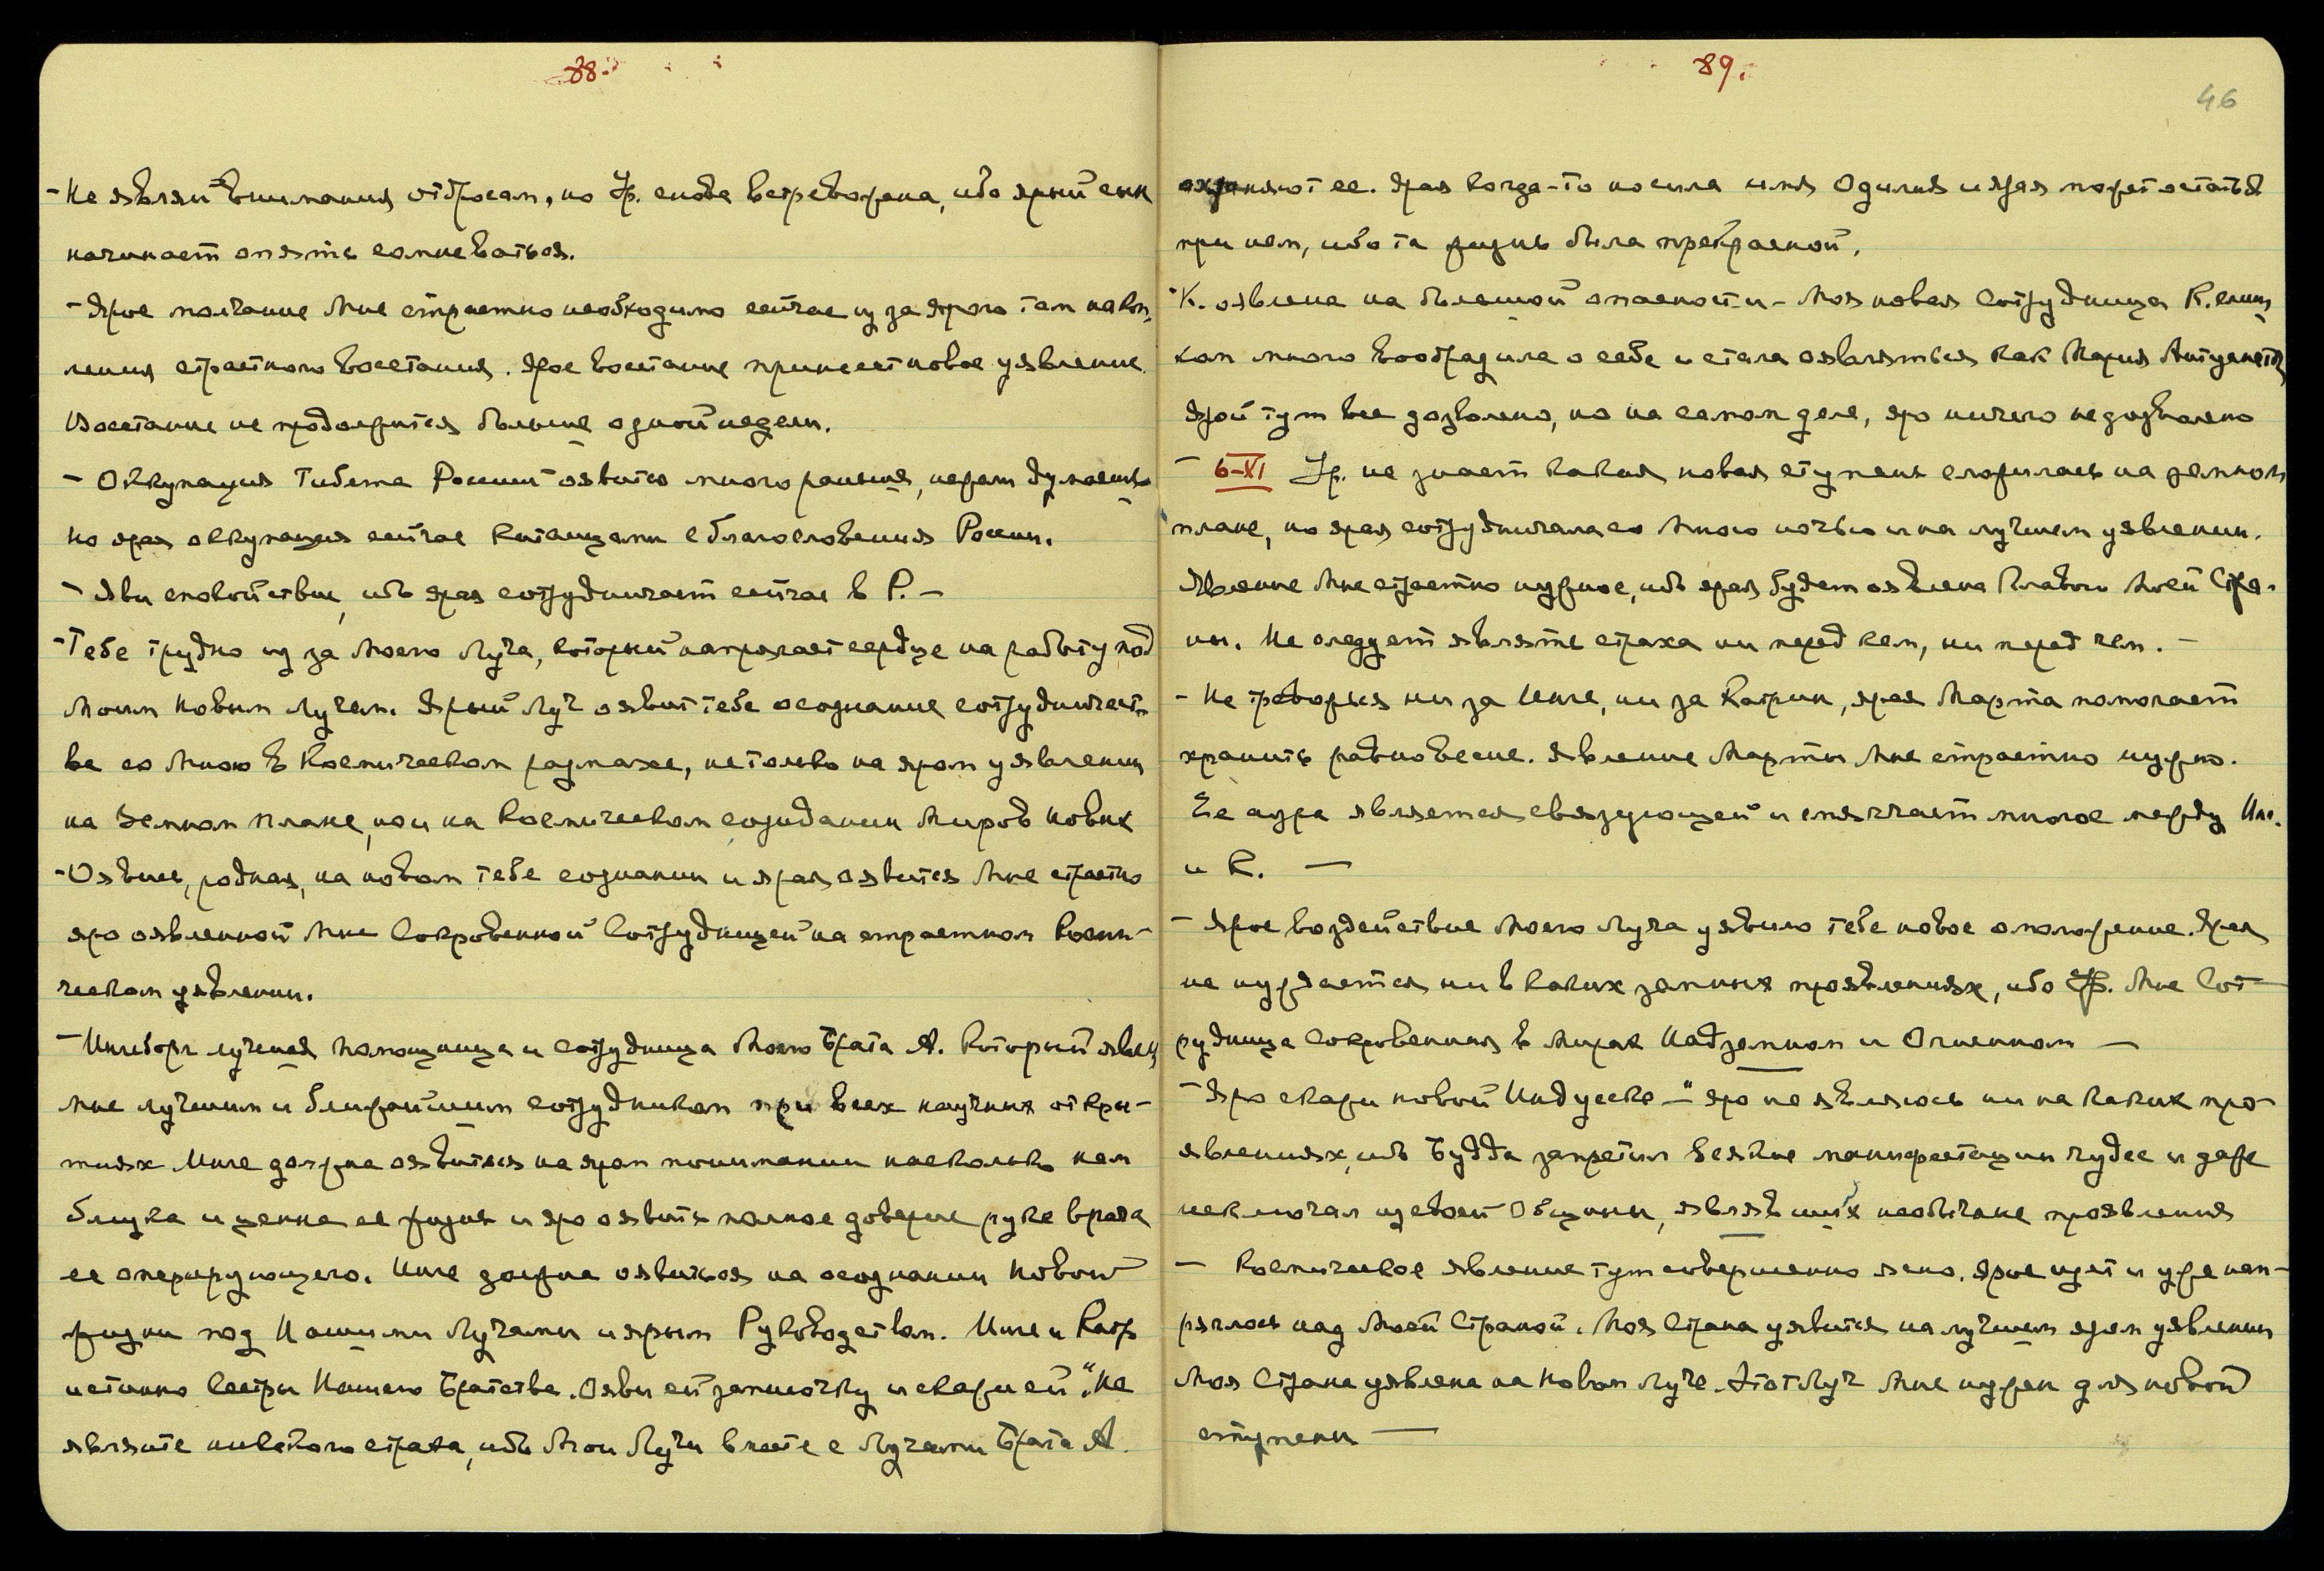 88.
- Не являй внимания отбросам, но Ур. снова встревожена, ибо ярый сын
начинает опять сомневаться.
- Ярое молчание Мне страстно необходимо сейчас из за ярого там накоп-
ления страстного восстания. Ярое восстание принесет новое уявление.
Восстание не продолжится больше одной недели.
- Оккупация Тибета Россией оявится много раньше, нежели думаешь
но ярая оккупация сейчас китайцами с благословения России.
- Яви спокойствие, ибо ярая сотрудничает сейчас в Р. -
- Тебе трудно из за Моего Луча, который напрягает сердце на работу под
Моим Новым Лучем. Ярый Луч оявит тебе осознание сотрудничест-
ва со Мною в Космическом размахе, не только на яром уявлении
на Земном плане, но и на Космическом созидании Миров новых
- Оявись, родная, на новом тебе сознании и ярая оявится Мне страстно
яро оявленной Мне Сокровенной Сотрудницей на страстном Косми-
ческом уявлении.
- Ингеборг лучшая помощница и сотрудница Моего Брата А. который явлен
Мне лучшим и ближайшим сотрудником при всех научных откры-
тиях Инге должна оявиться на яром понимании насколько нам
близка и ценна ее жизнь и яро оявить полное доверие руке врага
ее оперирующего. Инге должна оявиться на осознании Новой
жизни под Нашими Лучами и ярым Руководством. Инге и Катр
истинно Сестры Нашего Братства. Ояви ей записочку и скажи ей "Не
являйте никакого страха, ибо Мои Лучи вместе с Лучами Брата А.
89.
46
охраняют ее. Ярая когда-то носила имя Одилия и ярая может остаться
при нем, ибо та жизнь была прекрасной.
- К. оявлена на большой опасности - Моя новая Сотрудница К. слиш
ком много вообразила о себе и стала оявляться как Мария Антуанета
Ярой тут все дозволено, но на самом деле, яро ничего не дозволено
- 6-XI Ур. не знает какая новая ступень сложилась на земном
плане, но ярая сотрудничала со Мною ночью и на лучшем уявлении.
Явление Мне страстно нужное, ибо ярая будет оявлена Главою Моей Стра-
ны. Не следует являть страха ни перед кем, ни перед чем. -
- Не тревожься ни за Инге, ни за Катрин, ярая Марта помогает
хранить равновесие. Явление Марты Мне страстно нужно.
Ее аура является связующей и смягчает многое между Инг.
и К. -
- Ярое воздействие Моего Луча уявило тебе новое омоложение. Ярая
не нуждается ни в каких земных проявлениях, ибо Ур. Мне Сот-
рудница Сокровенная в Мирах Надземном и Огненном -
- Яро скажи новой Индуске - "яро не являюсь ни на каких про-
явлениях, ибо Будда запретил всякие манифестации чудес и даже
исключал из своей Общины, являвших необычные проявления
- Космическое явление тут совершенно ясно. Ярое идет и уже нап-
ряглось над Моей Страной. Моя Страна уявится на лучшем яром уявлении
Моя Страна уявлена на Новом Луче. Этот Луч Мне нужен для новой
ступени -